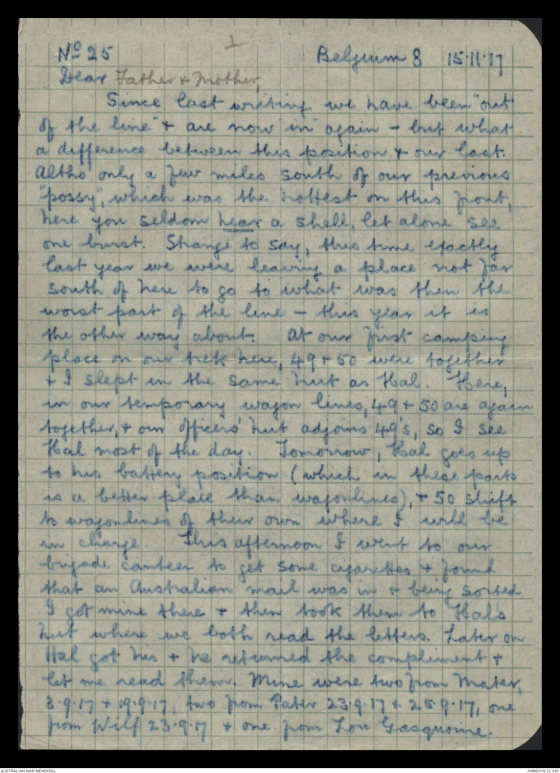 1
No 25 Belgium 8 15.11.17
Dear Father & Mother,
Since last writing we have been "out
of the line" & are now "in" again - but what
a difference between this position & our last.
Altho only a few miles south of our previous
"possy", which was the hottest on this front,
here you seldom hear a shell, let alone see
one burst. Strange to say, this time exactly
last year we were leaving a place not far
south of here to go to what was then the
worst part of the line - this year it is
the other way about. At our first camping
place on our trek here, 49 & 50 were together
& I slept in the same hut as Hal. Here,
in our temporary wagon lines, 49 & 50 are again
together, & our officers' hut adjoins 49's, so I see
Hal most of the day. Tomorrow, Hal goes up
to his battery position (which in these parts
is a better place than wagonlines), & 50 shift
to wagonlines of their own where I will be
in charge. This afternoon I went to our
brigade canteen to get some cigarettes & found
that an Australian mail was in & being sorted
I got mine there & then took them to Hal's
hut where we both read the letters. Later on
Hal got his & he returned the compliment &
let me read them. Mine were two from Mater,
3.9.17 & 19.9.17, two from Pater 23.9.17 & 25.9.17, one
from Wilf 23.9.17 & one from Lou Gasquoine.
AUSTRALIAN WAR MEMORIAL